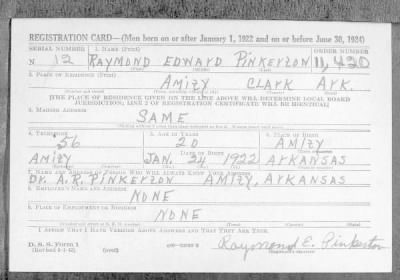 REGISTRATION CARD—(Men born on or after January 1, 1922 and on or before June 30, 1924)
SERIAL NUMBER 1. NAME (Print) ORDER NUMBER
N 12 RAYMOND EDWARD PINKERTON 11,420
2. PLACE OF RESIDENCE (Print)
AMITY CLARK ARK.
[THE PLACE OF RESIDENCE GIVEN ON THE LINE ABOVE WILL DETERMINE LOCAL BOARD
JURISDICTION; LINE 2 OF REGISTRATION CERTIFICATE WILL BE IDENTICAL]
3. MAILING ADDRESS
SAME
4. TELEPHONE 5. AGE IN YEARS 6. PLACE OF BIRTH
56 20 AMITY
DATE OF BIRTH
AMITY JAN. 24 1922 ARKANSAS
7. NAME AND ADDRESS OF PERSON WHO WILL ALWAYS KNOW YOUR ADDRESS
DR. A.R. PINKERTON AMITY, ARKANSAS
8. EMPLOYER'S NAME AND ADDRESS
NONE
9. PLACE OF EMPLOYMENT OR BUSINESS
NONE
I AFFIRM THAT I HAVE VERIFIED ABOVE ANSWERS AND THAT THEY ARE TRUE.
D. S. S. Form 1 (over) Raymond E. Pinkerton